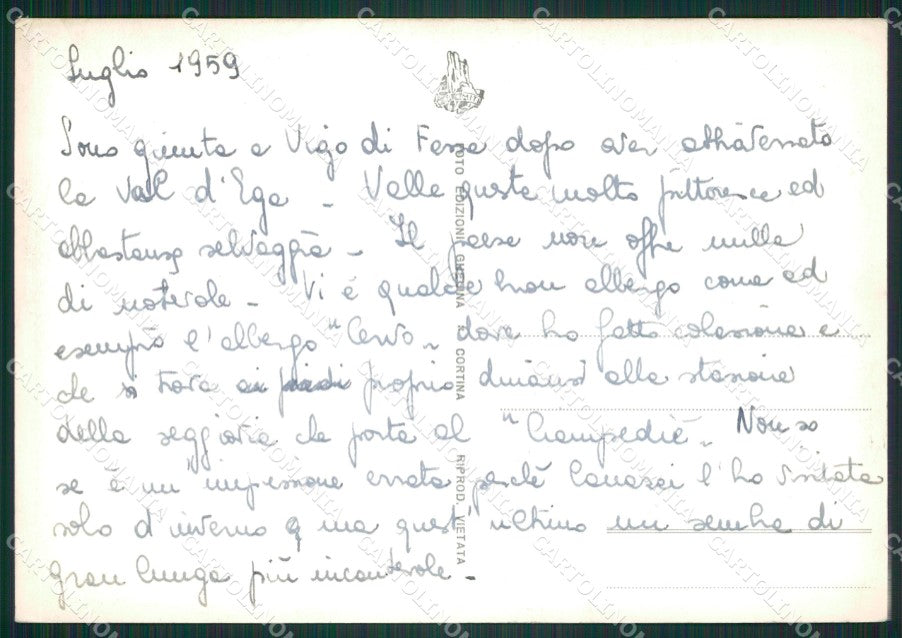 Luglio 1959
Sono giunta a Vigo di Fassa dopo aver attraversato
la Val d'Ega - Valle questa molto pittoresca ed
abbastanza selvaggia - Il paese non offre nulla
di notevole - Vi è qualche buon albergo come ad
esempio l'albergo "Cervo" dove ho fatto colazione e
che si trova proprio dinanzi alla stazione
della seggiovia che porta al "Ciampedie" Non so
se è un'impressione errata perché Canazei l'ho visitata
solo d'inverno ma quest'ultimo mi sembra di
gran lunga più incantevole -
FOTO EDIZIONI GHEDINA - CORTINA RIPROD. VIETATA
CARTOLINOMANIA